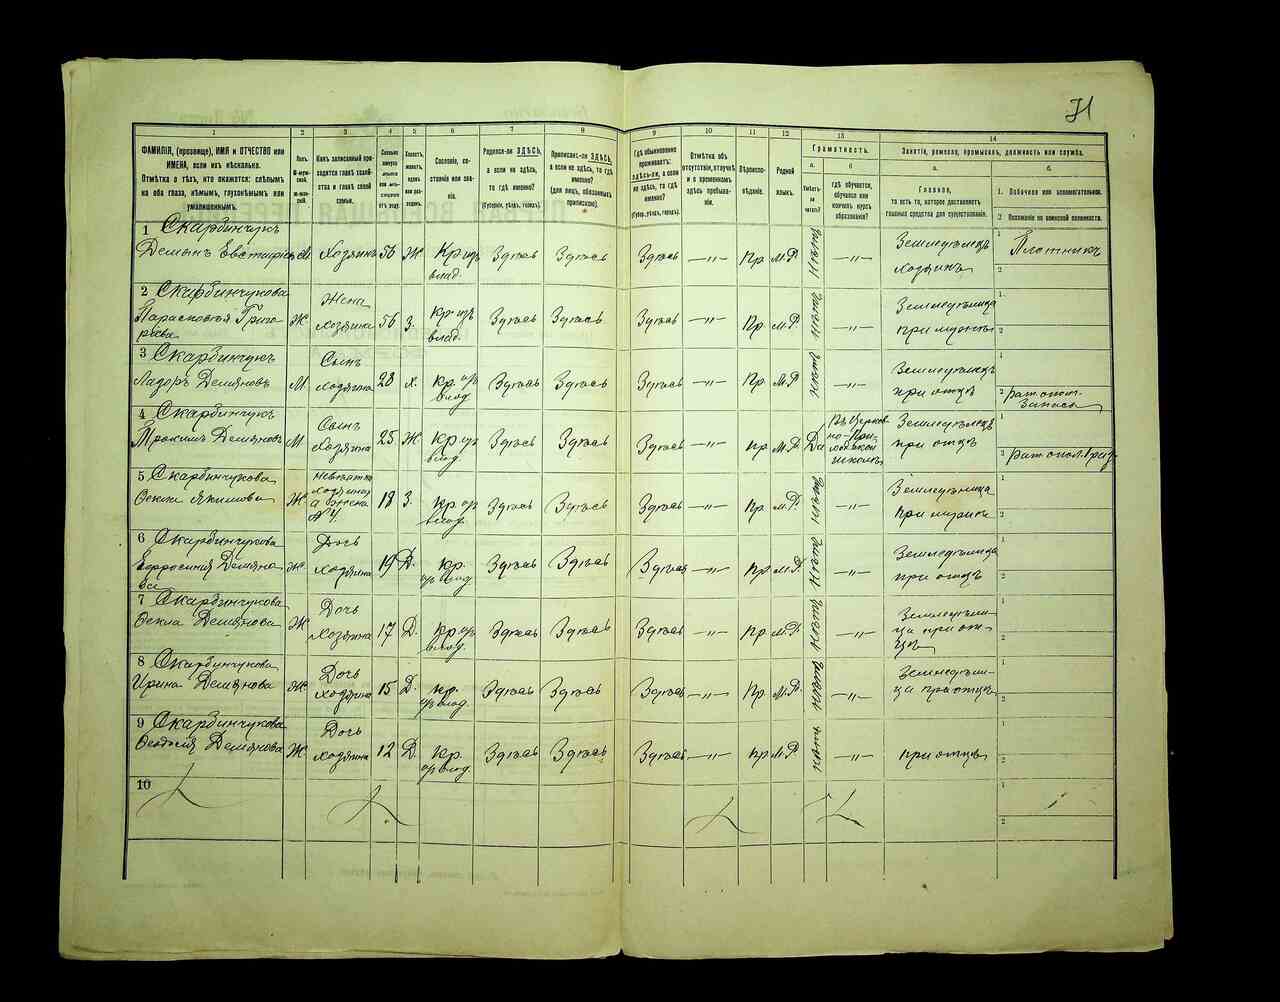 71
1
2
3
4
5
6
7
8
9
10
11
12
13
14
ФАМИЛІЯ, (прозвище), ИМЯ и ОТЧЕСТВО или
ИМЕНА, если ихъ нѣсколько.
Отмѣтка о тѣхъ, кто окажется: слѣпымъ
на оба глаза, нѣмымъ, глухонѣмымъ или
умалишеннымъ.
Полъ.
Какъ записанный при-
ходится главѣ хозяй-
ства и главѣ своей
семьи.
Сословіе, со-
стояніе или зва-
ніе.
Родился-ли ЗДѢСЬ,
а если не здѣсь,
то гдѣ именно?
(Губернія, уѣздъ, городъ).
Приписанъ-ли ЗДѢСЬ,
а если не здѣсь, то гдѣ
именно?
(для лицъ, обязанныхъ
припискою).
Гдѣ обыкновенно
проживаетъ:
ЗДѢСЬ-ли, а если
не здѣсь, то гдѣ
именно?
(Губер., уѣздъ, городъ).
Отмѣтка объ
отсутствіи, отлучкѣ
и о временномъ
здѣсь пребыва-
ніи.
Вѣроиспо-
вѣданіе.
Родной
языкъ.
Грамотность.
а.
б.
Умѣетъ-
ли
читать?
гдѣ обучается,
обучался или
кончилъ курсъ
образованія?
Занятія, ремесло, промыселъ, должность или служба.
а.
б.
Главное,
то есть то, которое доставляетъ
главныя средства для существованія.
1. Побочное или вспомогательное.
2 Положеніе по воинской повинности.
1 Скарбинчукъ
Демьянъ Евстафіевъ М Хозяинъ 56 Ж Кр. изъ влад. Здѣсь Здѣсь Здѣсь —"— Пр. М.Р. Нѣтъ —"— Земледѣлецъ хозяинъ Плотникъ
2 Скарбинчукова
Парасковья Григо-
рьева Ж Жена хозяина 56 З. Кр. изъ влад. Здѣсь Здѣсь Здѣсь —"— Пр. М.Р. Нѣтъ —"— Земледѣлица при мужѣ
3 Скарбинчукъ
Демяновъ М. Сынъ хозяина 28 Х. Кр. изъ влад Здѣсь Здѣсь Здѣсь —"— Пр. М.Р Нѣтъ —"— Земледѣлецъ при отцѣ рат. опол. Запаса
4 Скарбинчукъ
Трохимъ Демяновъ М. Сынъ хозяина 25 Ж Кр. изъ влад. Здѣсь Здѣсь Здѣсь —"— Пр. М.Р. Да Въ Церков-
но-При-
ходской
школѣ Земледѣлецъ при отцѣ
5 Скарбинчукова
Фекла Якимова Ж Невѣстка хозяина а жена № 4. 18 З. Кр. изъ влад. Здѣсь Здѣсь Здѣсь —"— Пр. М.Р. Нѣтъ —"— Земледѣлица при мужѣ
6 Скарбинчукова
Ефросинія Демяно-
ва Ж Дочь хозяина 19 Д. Кр. изъ влад Здѣсь Здѣсь Здѣсь —"— Пр М.Р. Нѣтъ —"— Земледѣлица при отцѣ
7 Скарбинчукова
Фекла Демянова Ж Дочь хозяина 17 Д. Кр. изъ влад. Здѣсь Здѣсь Здѣсь —"— Пр. М.Р. Нѣтъ —"— Земледѣли-
ца при от-
цѣ
8 Скарбинчукова
Ирина Демянова Ж Дочь хозяина 15 Д. Кр. изъ влад. Здѣсь Здѣсь Здѣсь —"— Пр. М.Р. Нѣтъ —"— Земледѣли-
ца при отцѣ
9 Скарбинчукова
Демянова Ж Дочь хозяина 12 Д. Кр. изъ влад. Здѣсь Здѣсь Здѣсь —"— Пр М.Р Нѣтъ —"— при отцѣ
10